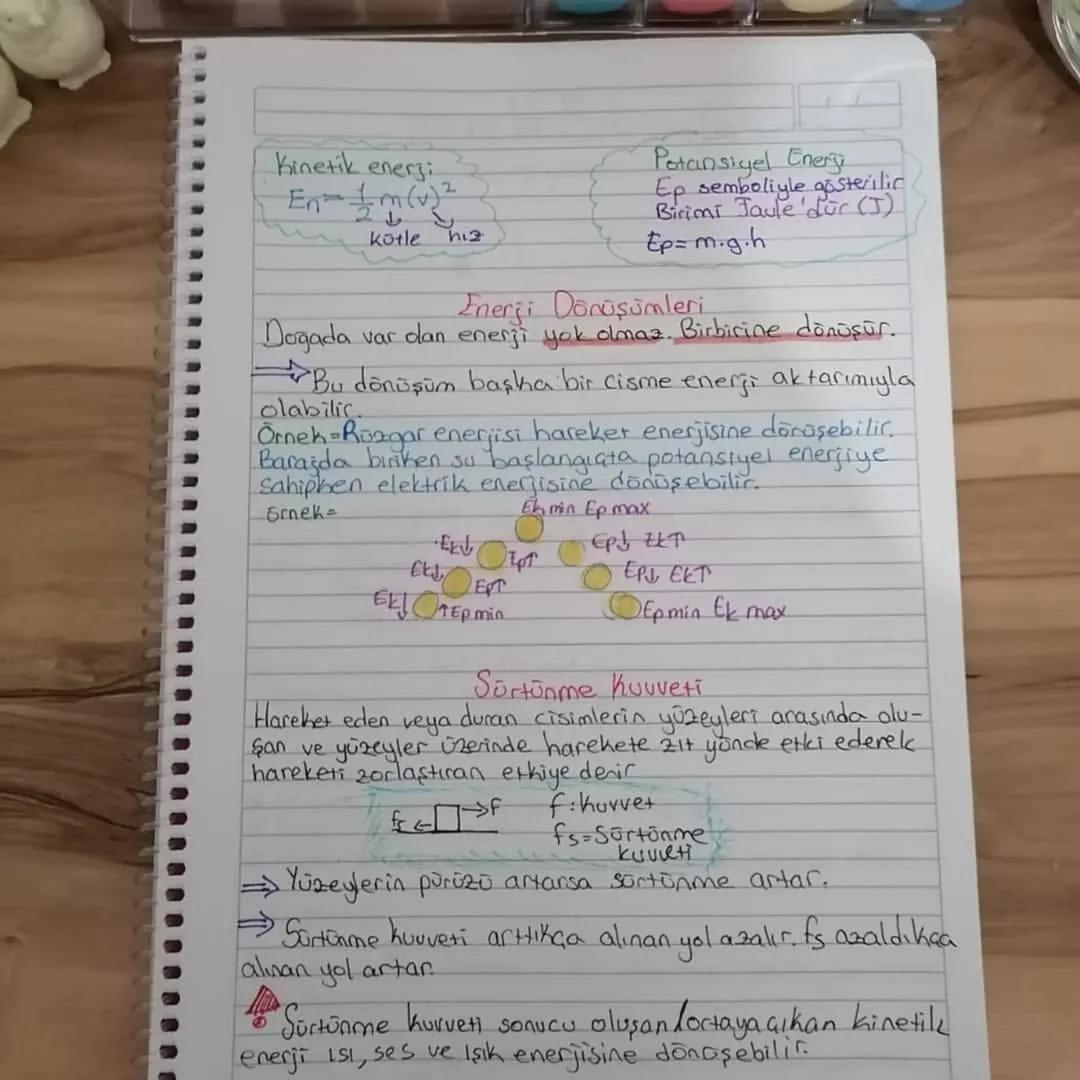 Kinetik enerji
En=1/2 m(v)²
↓ ↘
kütle hız
Potansiyel Enerji
Ep semboliyle gösterilir
Birimi Joule'dür (J)
Ep= m.g.h
Enerji Dönüşümleri
Doğada var olan enerji yok olmaz. Birbirine dönüşür.
⇒ Bu dönüşüm başka bir cisme enerji aktarımıyla
olabilir.
Örnek=Rüzgar enerjisi hareket enerjisine dönüşebilir.
Barajda biriken su başlangıçta potansiyel enerjiye
sahipken elektrik enerjisine dönüşebilir.
Örnek=
Ek min Ep max
Ek↓ Ep↑ Ep↓ Ek↑
Ek↓ Ep↑ Ep↓ Ek↑
Ek↓ ↑Ep min Ep min Ek max
Sürtünme Kuvveti
Hareket eden veya duran cisimlerin yüzeyleri arasında olu-
şan ve yüzeyler üzerinde harekete zıt yönde etki ederek
hareketi zorlaştıran etkiye denir
fs ← → f f:kuvvet
fs=Sürtünme
kuvveti
⇒ Yüzeylerin pürüzü artarsa sürtünme artar.
⇒ Sürtünme kuvveti arttıkça alınan yol azalır. fs azaldıkça
alınan yol artar.
! Sürtünme kuvveti sonucu oluşan/ortaya çıkan kinetik
enerji ısı, ses ve ışık enerjisine dönüşebilir.